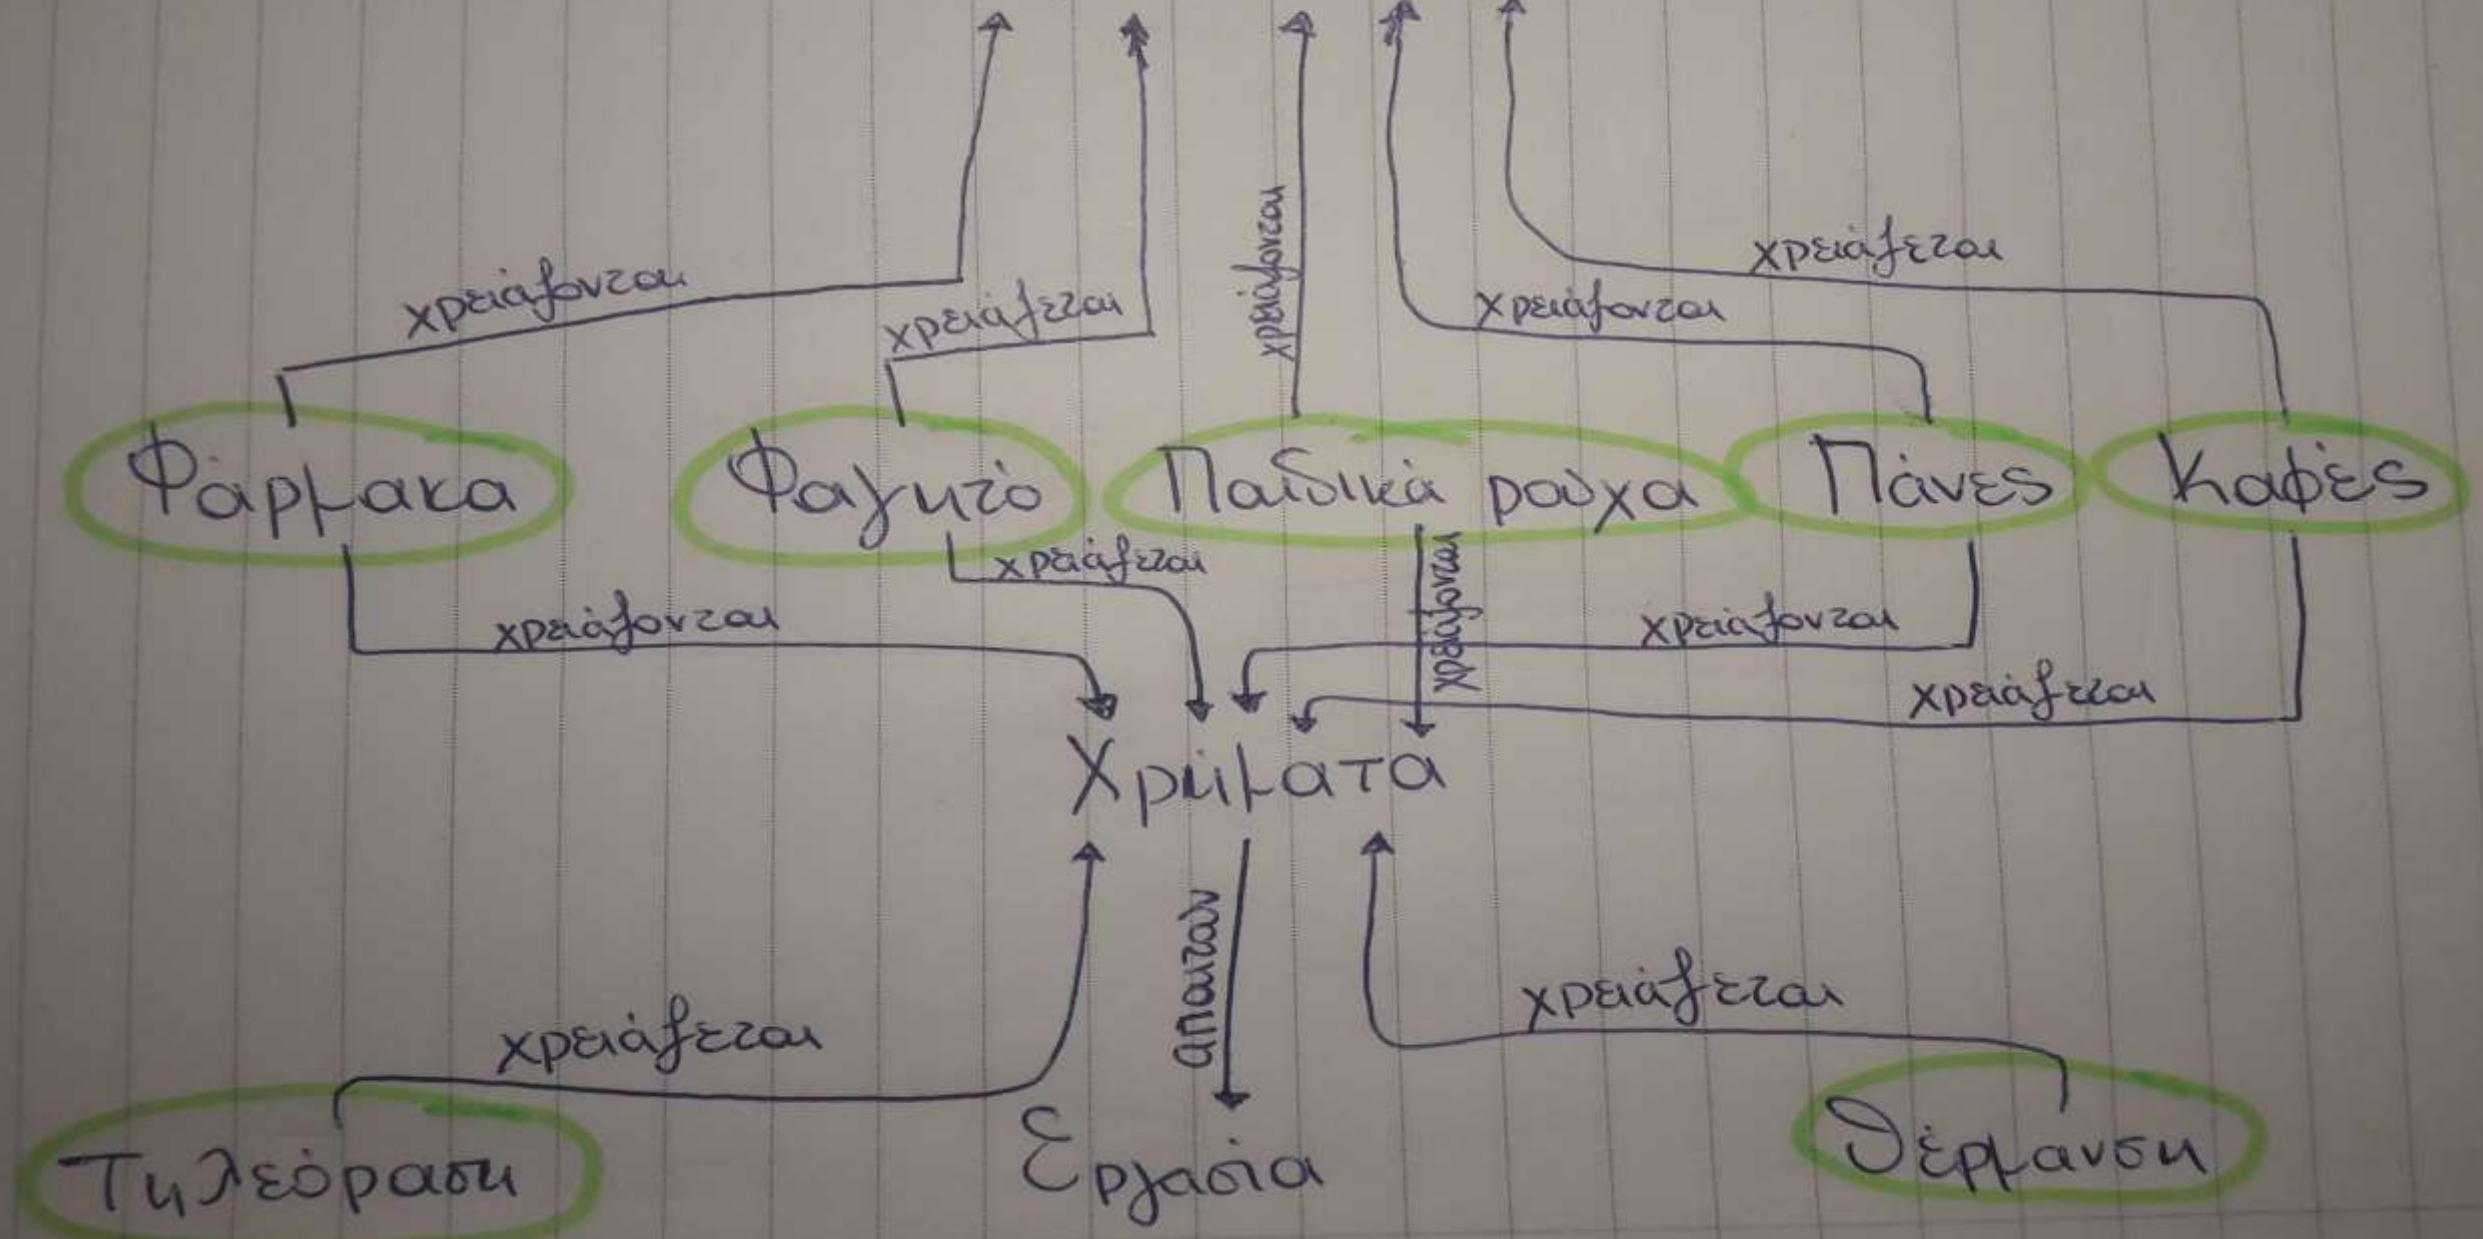 χρειάζεται
χρειάζονται
χρειάζεται
χρειάζονται
χρειάζονται
Φάρμακα
Φαγητό
Παιδικά ρούχα
Πάνες
Καφές
χρειάζεται
χρειάζονται
χρειάζονται
χρειάζονται
χρειάζεται
Χρήματα
απαιτούν
χρειάζεται
χρειάζεται
Τηλεόραση
Εργασία
Θέρμανση